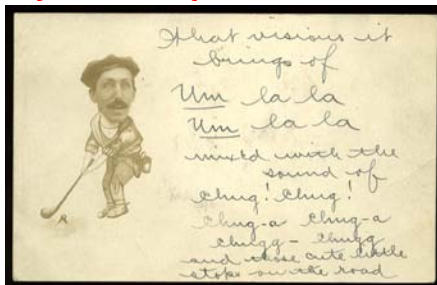 What visions it
brings of
Um la la
Um la la
mixed with the
sound of
Chug! Chug!
Chug-a Chug-a
Chugg - Chugg
and those cute little
stops on the road